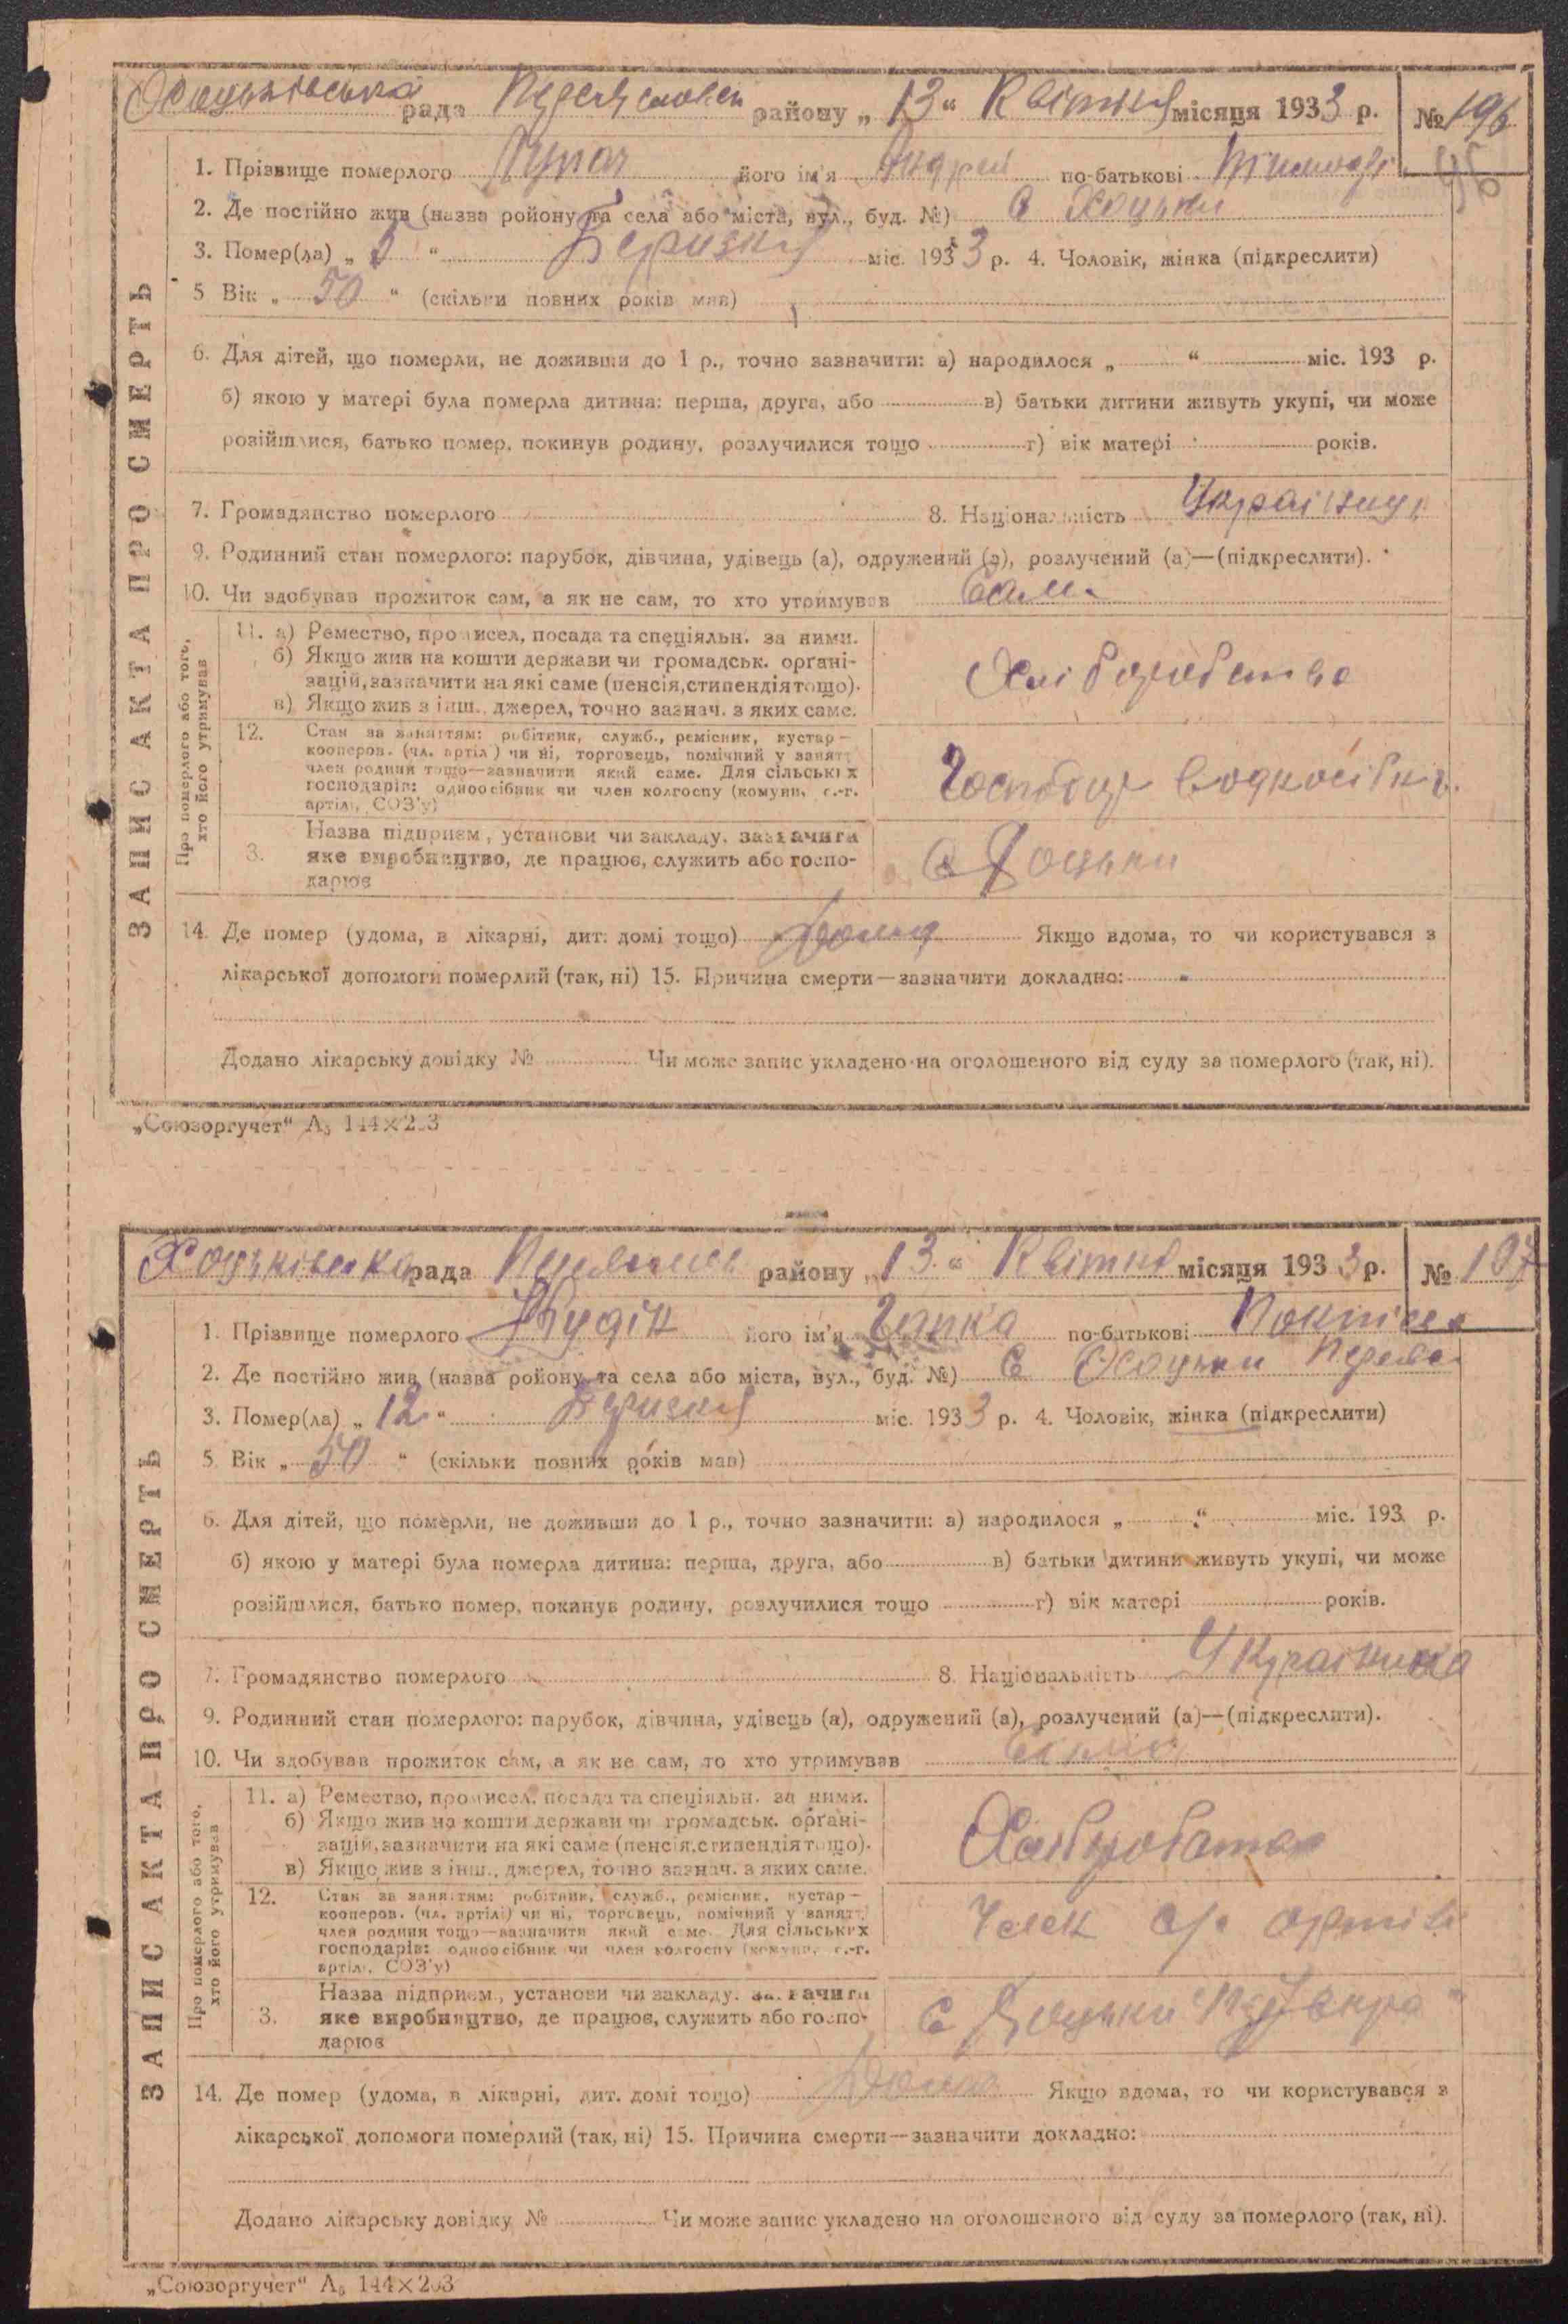 Хоцьківська рада Переяславськ району „ 13 “ Квітня місяця 1933 р. № 196
1. Прізвище померлого його ім'я Андрей по-батькові Тимоф.
2. Де постійно жив (назва ройону та села або міста, вул., буд. №) с Хоцьки
3. Помер(ла) „ “ Березня міс. 1933 р. 4. Чоловік, жінка (підкреслити)
5 Вік „ 50 “ (скільки повних років мав)
6. Для дітей, що померли, не доживши до 1 р., точно зазначити: а) народилося „ “ міс. 193 р.
б) якою у матері була померла дитина: перша, друга, або в) батьки дитини живуть укупі, чи може
розійшлися, батько помер, покинув родину, розлучилися тощо г) вік матері років.
7. Громадянство померлого 8. Національність Українец
9. Родинний стан померлого: парубок, дівчина, удівець (а), одружений (а), розлучений (а)—(підкреслити).
10. Чи здобував прожиток сам, а як не сам, то хто утримував Сам
11. а) Ремество, промисел, посада та спеціяльн. за ними.
б) Якщо жив на кошти держави чи громадськ. орґані-
зацій, зазначити на які саме (пенсія, стипендія тощо).
в) Якщо жив з інш. джерел, точно зазнач. з яких саме.
Хліборобство
12. Стан за заняттям: робітник, служб., ремісник, кустар—
кооперов. (чл. артіл) чи ні, торговець, помічний у занятт
член родини тощо—зазначити який саме. Для сільських
господарів: одноосібник чи член колгоспу (комуни, с.-г.
артіль, СОЗ'у)
3. Назва підприєм, установи чи закладу, зазначити
яке виробництво, де працює, служить або госпо-
дарює
с Хоцьки
Про померлого або того,
хто його утримував
14. Де помер (удома, в лікарні, дит. домі тощо) Дома Якщо вдома, то чи користувався з
лікарської допомоги померлий (так, ні) 15. Причина смерти—зазначити докладно:
Додано лікарську довідку № Чи може запис укладено на оголошеного від суду за померлого (так, ні).
ЗАПИС АКТА ПРО СМЕРТЬ
„Союзоргучет“ А₅ 144×203
Хоцьківська рада району „ 13 “ Квітня місяця 1933 р. № 197
1. Прізвище померлого його ім'я Гапка по-батькові
2. Де постійно жив (назва ройону та села або міста, вул., буд. №) С Хоцьки Переяс
3. Помер(ла) „ 12 “ Березня міс. 1933 р. 4. Чоловік, жінка (підкреслити)
5 Вік „ 50 “ (скільки повних років мав)
6. Для дітей, що померли, не доживши до 1 р., точно зазначити: а) народилося „ “ міс. 193 р.
б) якою у матері була померла дитина: перша, друга, або в) батьки дитини живуть укупі, чи може
розійшлися, батько помер, покинув родину, розлучилися тощо г) вік матері років.
7. Громадянство померлого 8. Національність Українка
9. Родинний стан померлого: парубок, дівчина, удівець (а), одружений (а), розлучений (а)—(підкреслити).
10. Чи здобував прожиток сам, а як не сам, то хто утримував
11. а) Ремество, промисел, посада та спеціяльн. за ними.
б) Якщо жив на кошти держави чи громадськ. орґані-
зацій, зазначити на які саме (пенсія, стипендія тощо).
в) Якщо жив з інш. джерел, точно зазнач. з яких саме.
Хліборобство
12. Стан за заняттям: робітник, служб., ремісник, кустар—
кооперов. (чл. артілі) чи ні, торговець, помічний у занятт
член родини тощо—зазначити який саме. Для сільських
господарів: одноосібник чи член колгоспу (комуни, с.-г.
артіль, СОЗ'у)
Член с/г артілі
3. Назва підприєм, установи чи закладу, зазначити
яке виробництво, де працює, служить або госпо-
дарює
с Хоцьки
Про померлого або того,
хто його утримував
14. Де помер (удома, в лікарні, дит. домі тощо) Дома Якщо вдома, то чи користувався з
лікарської допомоги померлий (так, ні) 15. Причина смерти—зазначити докладно:
Додано лікарську довідку № Чи може запис укладено на оголошеного від суду за померлого (так, ні).
ЗАПИС АКТА ПРО СМЕРТЬ
„Союзоргучет“ А₅ 144×203